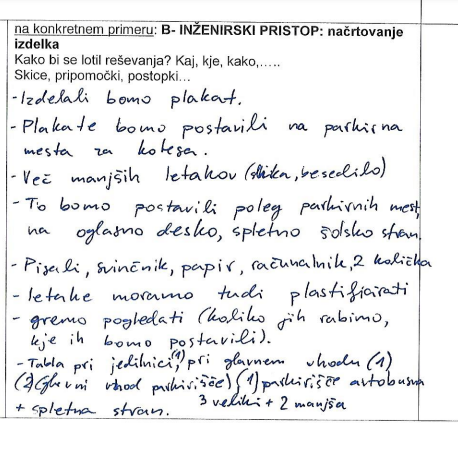 na konkretnem primeru: B- INŽENIRSKI PRISTOP: načrtovanje
izdelka
Kako bi se lotil reševanja? Kaj, kje, kako,.....
Skice, pripomočki, postopki...
- Izdelali bomo plakat.
- Plakate bomo postavili na parkirna
mesta za kolesa.
- Več manjših letakov (slika, besedilo)
- To bomo postavili poleg parkirnih mest,
na oglasno desko, spletno šolsko stran.
- Pisali, svinčnik, papir, računalnik, 2 količka
- letake moramo tudi plastificirati
- gremo pogledati (koliko jih rabimo,
kje jih bomo postavili).
- Tabla pri jedilnici, (1) pri glavnem vhodu (1)
(glavni vhod parkirišče) (1) parkirišče avtobusna
+ spletna stran. 3 veliki + 2 manjša